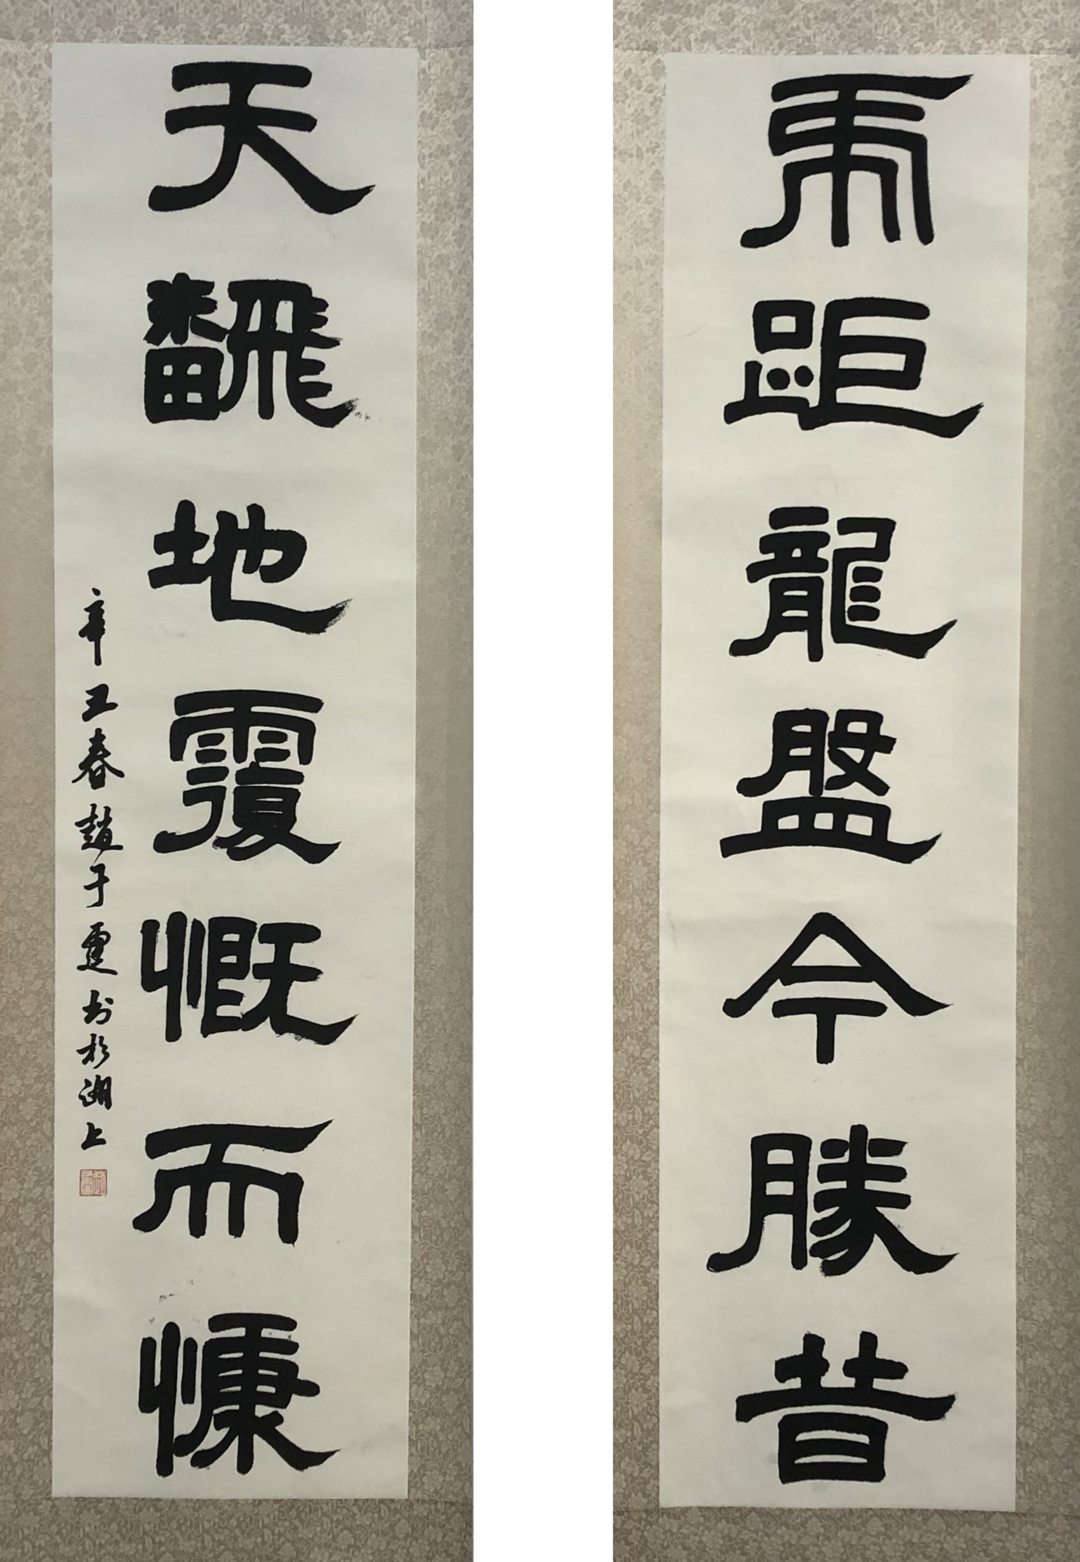 虎踞龍盤今勝昔
天翻地覆慨而慷
辛丑春趙于霆书於湖上